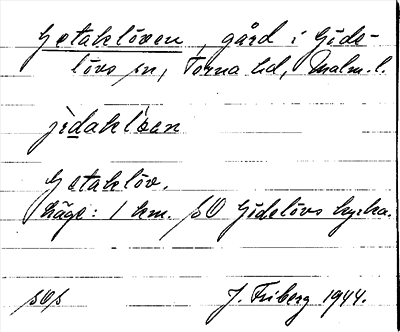 Getaklöven, gård i Göds-
lövs sn, Torna hd, Malm. l.
Getaklöv.
Läge: 1 km. SO Gödelövs kyrka.
J. Friberg 1944.